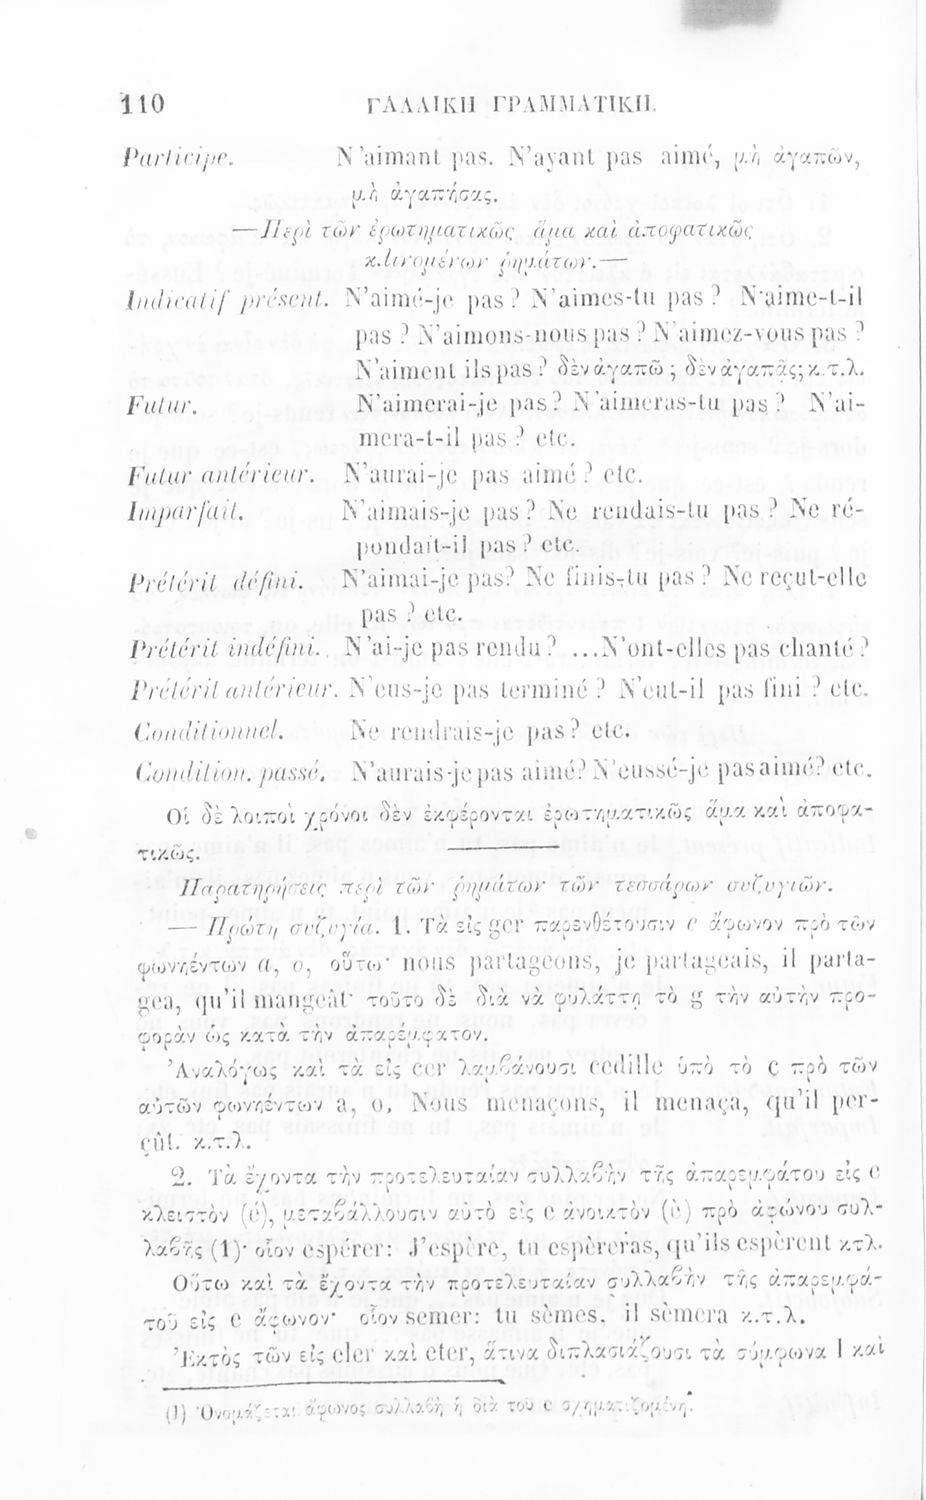 110 ΓΑΛΛΙΚΗ ΓΡΑΜΜΑΤΙΚΗ.
Participe. N'aimant pas. N'ayant pas aimé, μὴ ἀγαπῶν,
μὴ ἀγαπήσας.
—Περὶ τῶν ἐρωτηματικῶς ἅμα καὶ ἀποφατικῶς
κλινομένων ῥημάτων.—
Indicatif présent. N'aimé-je pas ? N'aimes-tu pas ? N'aime-t-il
pas ? N'aimons-nous pas ? N'aimez-vous pas ?
N'aiment ils pas ? δὲν ἀγαπῶ ; δὲν ἀγαπᾷς; κ.τ.λ.
Futur. N'aimerai-je pas ? N'aimeras-tu pas ? N'ai-
mera-t-il pas ? etc.
Futur antérieur. N'aurai-je pas aimé ? etc.
Imparfait. N'aimais-je pas ? Ne rendais-tu pas ? Ne ré-
pondait-il pas ? etc.
Prétérit défini. N'aimai-je pas? Ne finis-tu pas ? Ne reçut-elle
pas ? etc.
Prétérit indéfini. N'ai-je pas rendu ? ...N'ont-elles pas chanté ?
Prétérit antérieur. N'eus-je pas terminé ? N'eut-il pas fini ? etc.
Conditionnel. Ne rendrais-je pas ? etc.
Condition. passé. N'aurais-je pas aimé? N'eussé-je pas aimé? etc.
Οἱ δὲ λοιποὶ χρόνοι δὲν ἐκφέρονται ἐρωτηματικῶς ἅμα καὶ ἀποφα-
τικῶς.
Παρατηρήσεις περὶ τῶν ῥημάτων τῶν τεσσάρων συζυγιῶν.
— Πρώτη συζυγία. 1. Τὰ εἰς ger παρενθέτουσιν e ἄφωνον πρὸ τῶν
φωνηέντων a, o, οὕτω· nous partageons, je partageais, il parta-
gea, qu'il mangeât· τοῦτο δὲ διὰ νὰ φυλάττῃ τὸ g τὴν αὐτὴν προ-
φορὰν ὡς κατὰ τὴν ἀπαρέμφατον.
Ἀναλόγως καὶ τὰ εἰς cer λαμβάνουσι cédille ὑπὸ τὸ c πρὸ τῶν
αὐτῶν φωνηέντων a, o, Nous menaçons, il menaça, qu'il per-
çût. κ.τ.λ.
2. Τὰ ἔχοντα τὴν προτελευταίαν συλλαβὴν τῆς ἀπαρεμφάτου εἰς e
κλειστὸν (é), μεταβάλλουσιν αὐτὸ εἰς e ἀνοικτὸν (è) πρὸ ἀφώνου συλ-
λαβῆς (1)· οἷον espérer: J'espère, tu espèreras, qu'ils espèrent κτλ.
Οὕτω καὶ τὰ ἔχοντα τὴν προτελευταίαν συλλαβὴν τῆς ἀπαρεμφά-
τοῦ εἰς e ἄφωνον· οἷον semer: tu sèmes, il sèmera κ.τ.λ.
Ἐκτὸς τῶν εἰς eler καὶ eter, ἅτινα διπλασιάζουσι τὰ σύμφωνα l καὶ
(1) Ὀνομάζεται ἄφωνος συλλαβὴ ἡ διὰ τοῦ e σχηματιζομένη.